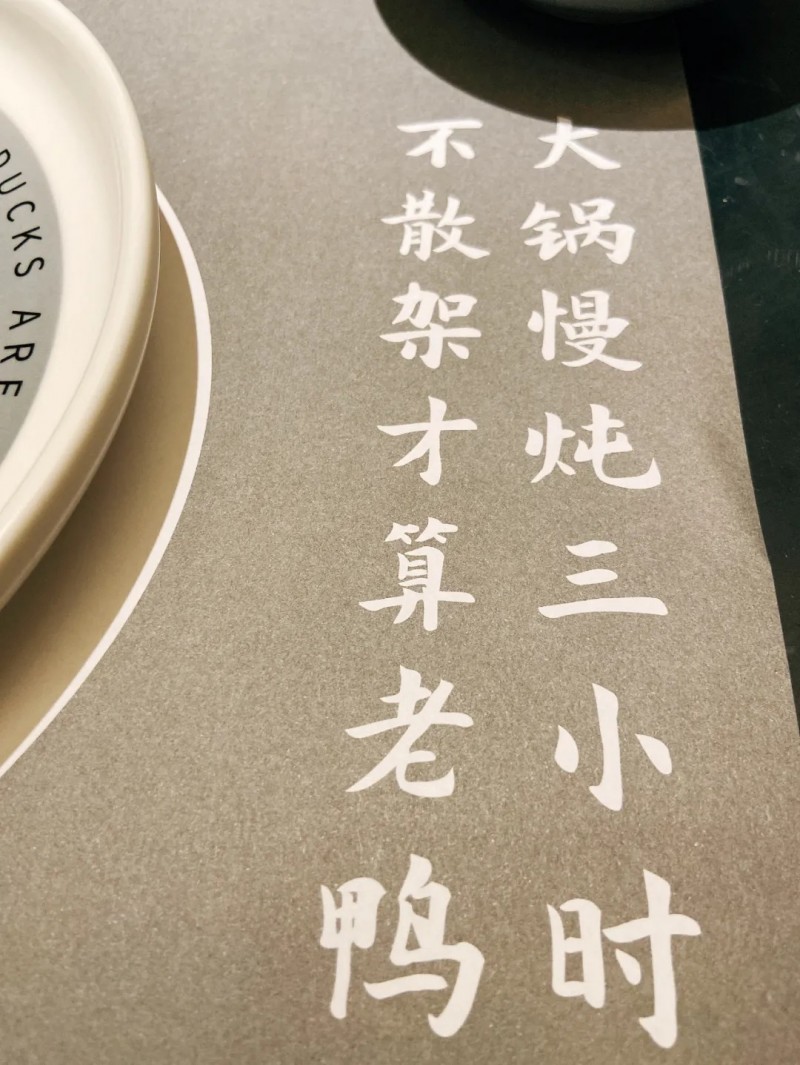 大锅慢炖三小时
不散架才算老鸭
DUCKS ARE